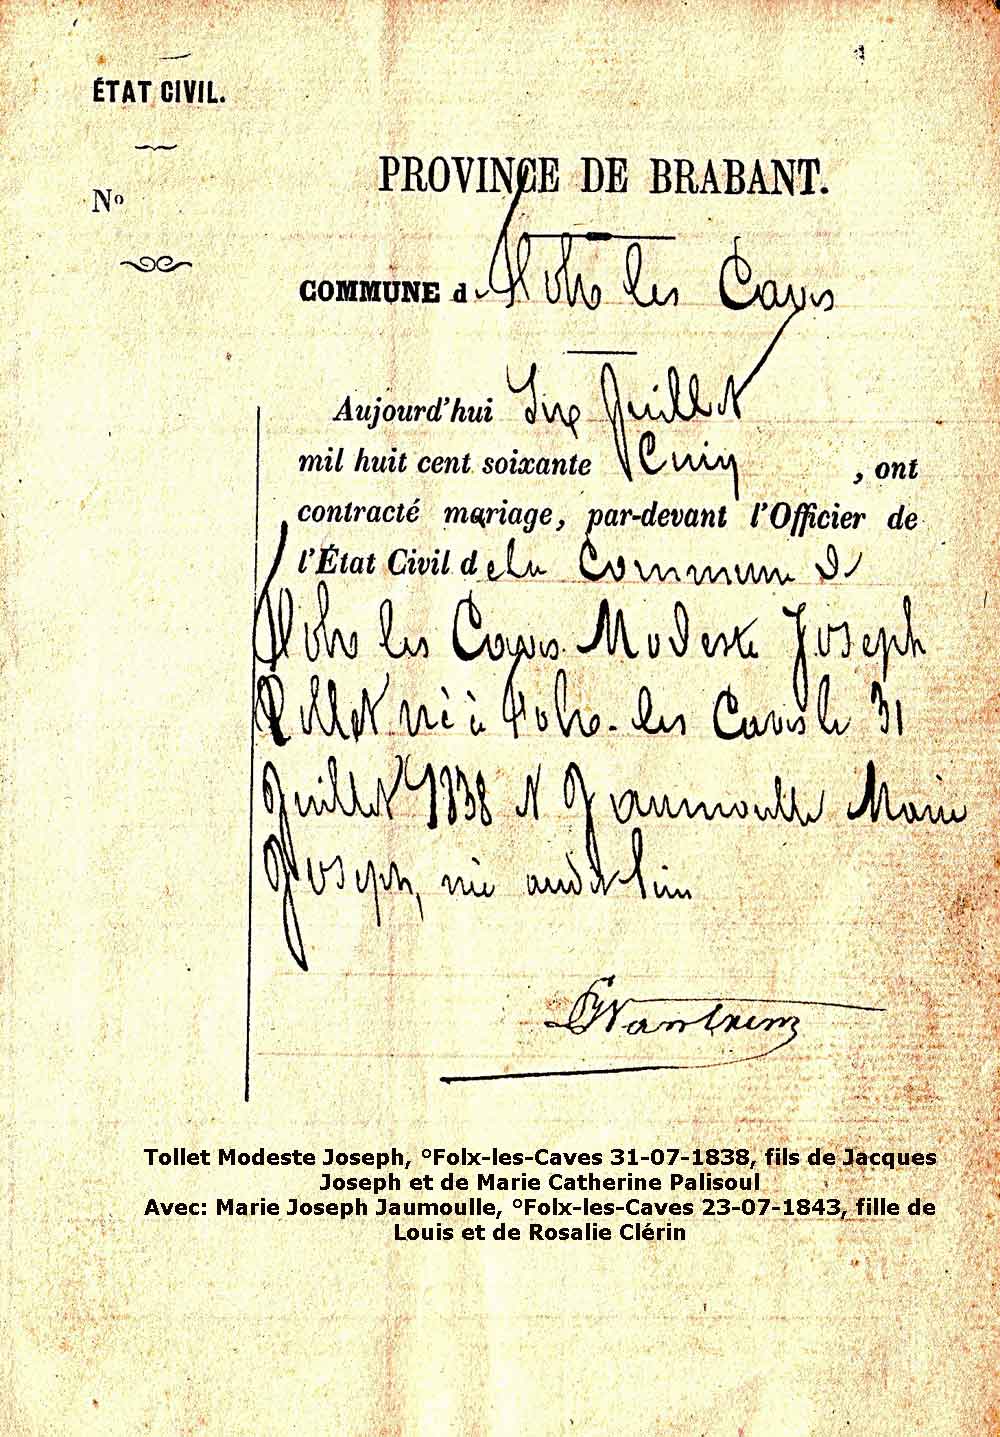 ÉTAT CIVIL.
Nº
PROVINCE DE BRABANT.
COMMUNE de Folx les Caves
Aujourd'hui Six Juillet
mil huit cent soixante Cinq, ont
contracté mariage, par-devant l'Officier de
l'État Civil de la Commune de
Folx les Caves Modeste Joseph
Tollet né à Folx-les Caves le 31
Juillet 1838 et Jaumoulle Marie
Joseph, née audit lieu
Tollet Modeste Joseph, °Folx-les-Caves 31-07-1838, fils de Jacques
Joseph et de Marie Catherine Palisoul
Avec: Marie Joseph Jaumoulle, °Folx-les-Caves 23-07-1843, fille de
Louis et de Rosalie Clérin